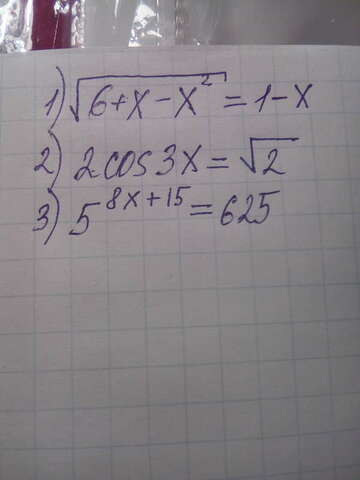 1) √(6+x-x²) = 1-x
2) 2cos3x = √2
3) 5^(8x+15) = 625